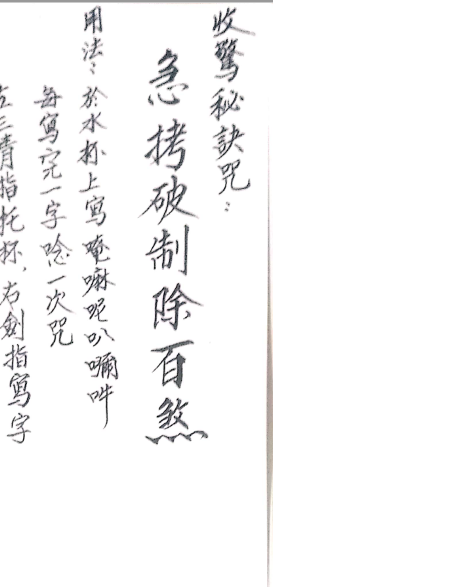 收驚秘訣咒：
急拷破制除百煞
用法：於水杯上寫唵嘛呢叭囒吽
每寫完一字唸一次咒
左三清指托杯，右劍指寫字